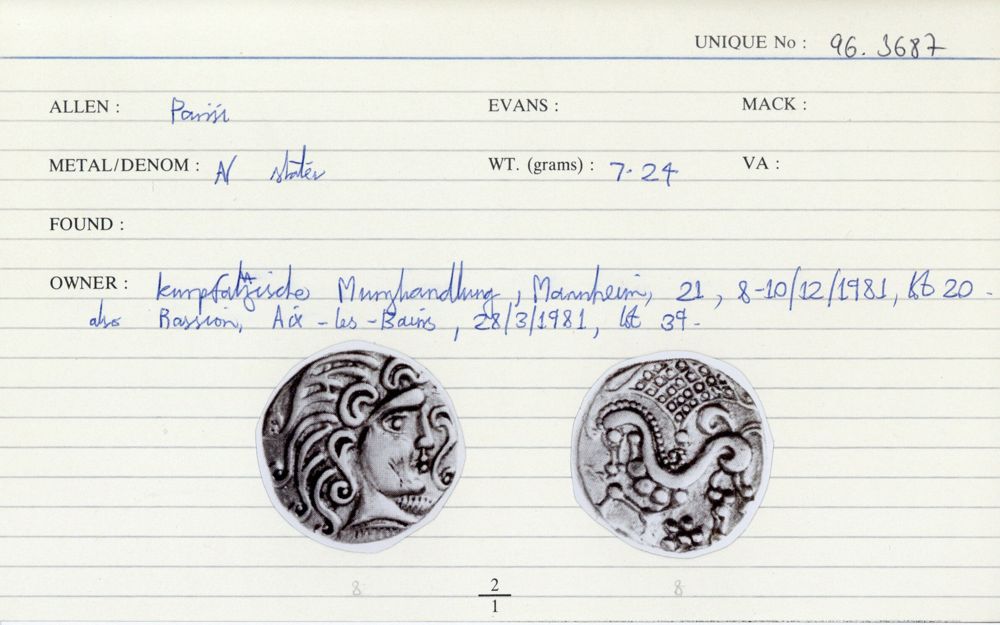 UNIQUE No : 96. 3687
ALLEN : Parisi EVANS : MACK :
METAL/DENOM : N stater WT. (grams) : 7.24 VA :
FOUND :
OWNER : Kurpfalzische Munzhandlung, Mannheim, 21, 8-10/12/1981, lot 20.
also Aix-les-Bains, 28/3/1981, lot 39.
8 2 8
1